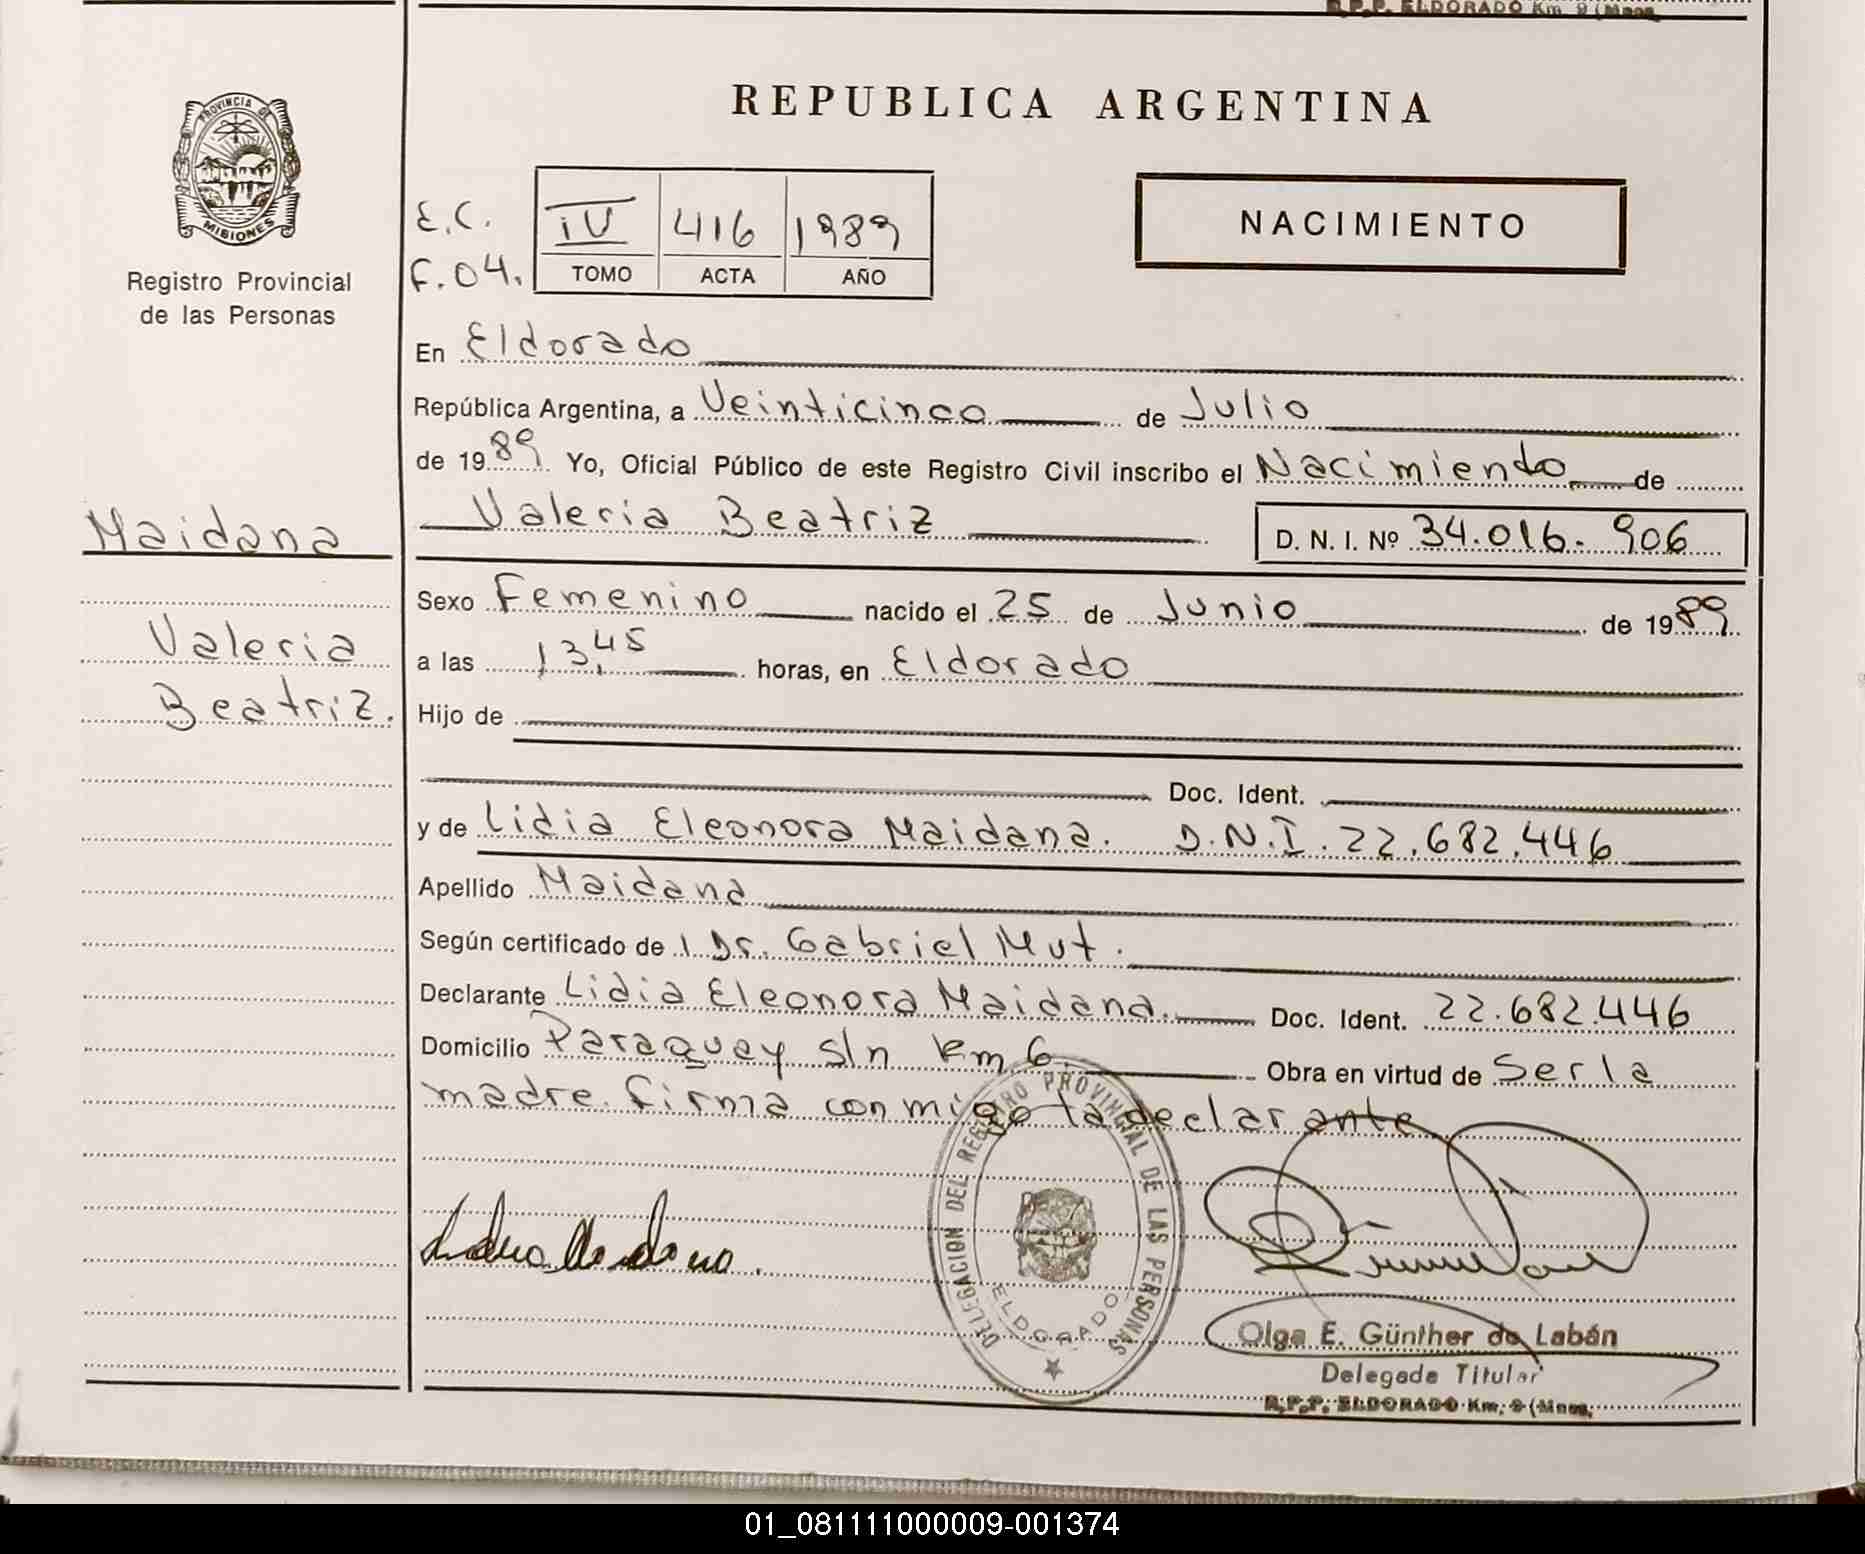 R.P.P. ELDORADO Km. 9 (Mnes.
PROVINCIA DE
MISIONES
Registro Provincial
de las Personas
REPUBLICA ARGENTINA
E.C.
F.04.
IV 416 1989
TOMO ACTA AÑO
NACIMIENTO
En Eldorado
República Argentina, a Veinticinco de Julio
de 1989 Yo, Oficial Público de este Registro Civil inscribo el Nacimiento de
Maidana
Valeria Beatriz D. N. I. Nº 34.016.906
Sexo Femenino nacido el 25 de Junio de 1989
Valeria
a las 13,45 horas, en Eldorado
Beatriz.
Hijo de
Doc. Ident.
y de Lidia Eleonora Maidana. D.N.I. 22.682.446
Apellido Maidana
Según certificado de Dr. Gabriel Mut.
Declarante Lidia Eleonora Maidana. Doc. Ident. 22.682.446
Domicilio Paraguay s/n km 6. Obra en virtud de Ser la
madre. firma conmigo la declarante
DELEGACION DEL REGISTRO PROVINCIAL DE LAS PERSONAS
ELDORADO
Olga E. Günther de Labán
Delegada Titular
R.P.P. ELDORADO Km. 9 (Mnes.
01_081111000009-001374